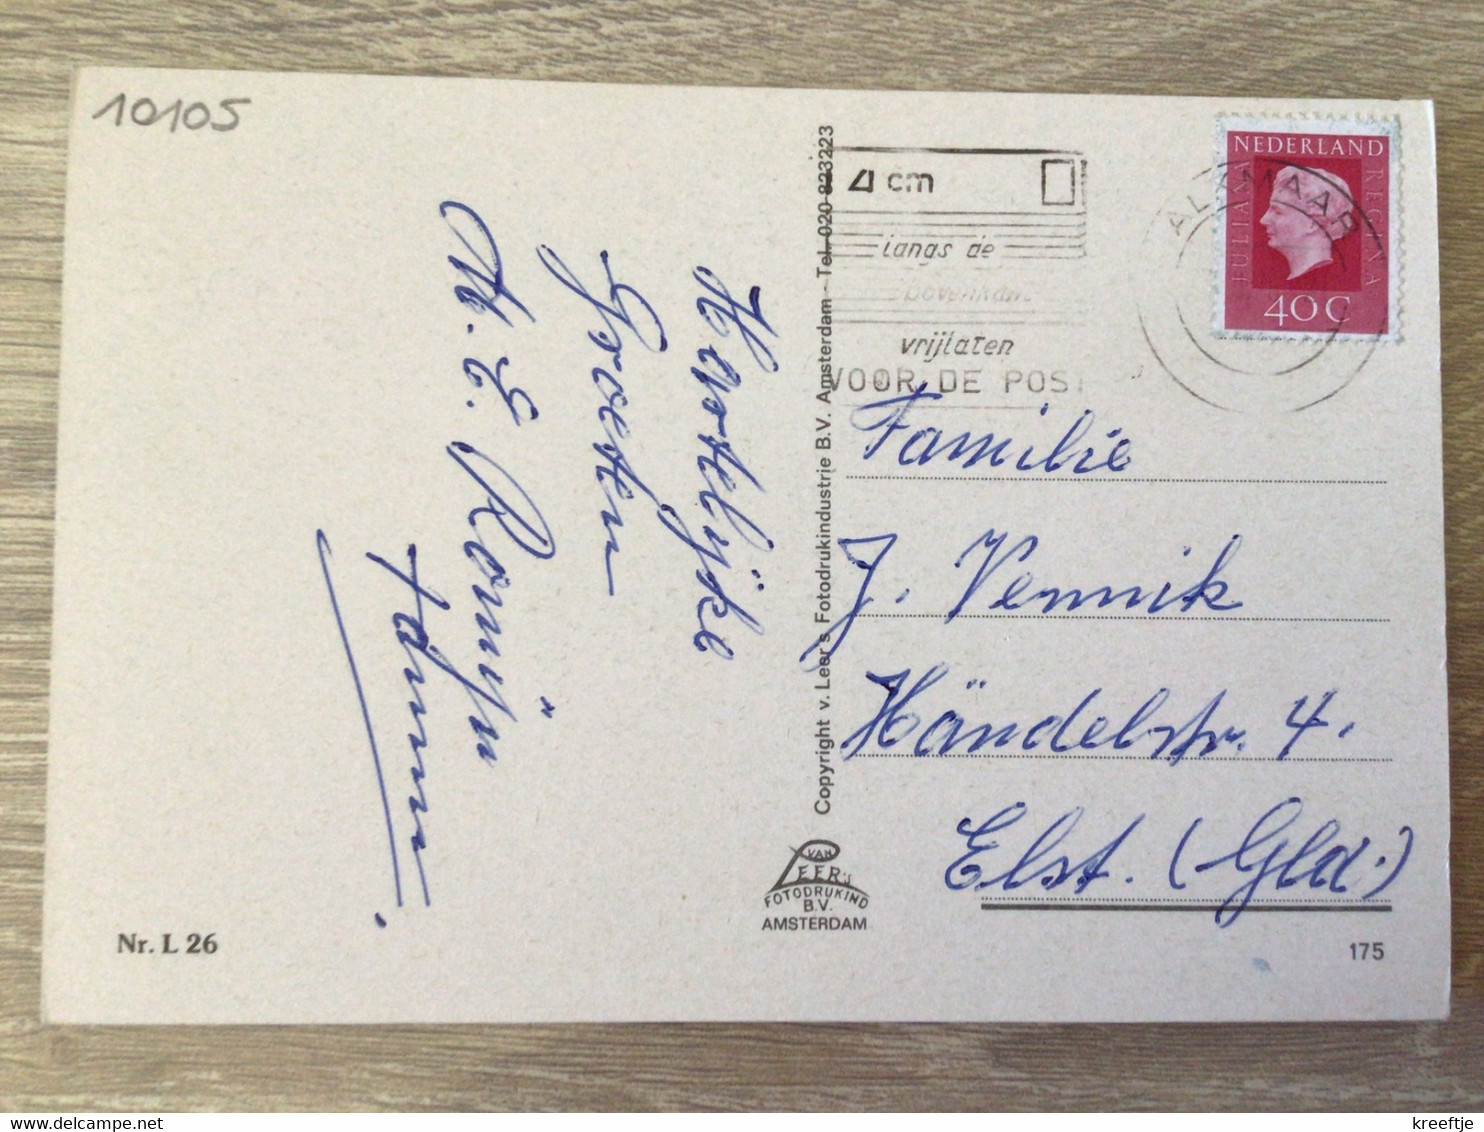 10105
Hartelijke
Groeten
E. Romijn
Nr. L 26
Copyright v. Leer's Fotodrukindustrie B.V. Amsterdam - Tel. 020-823223
VAN
LEER'S
FOTODRUKIND
B.V.
AMSTERDAM
4 cm
langs de
bovenkant
vrijlaten
VOOR DE POST
ALKMAAR
NEDERLAND
JULIANA
REGINA
40C
Familie
J. Vennik
Händelstr. 4.
Elst. (Gld.)
175
delcampe.net
kreeftje